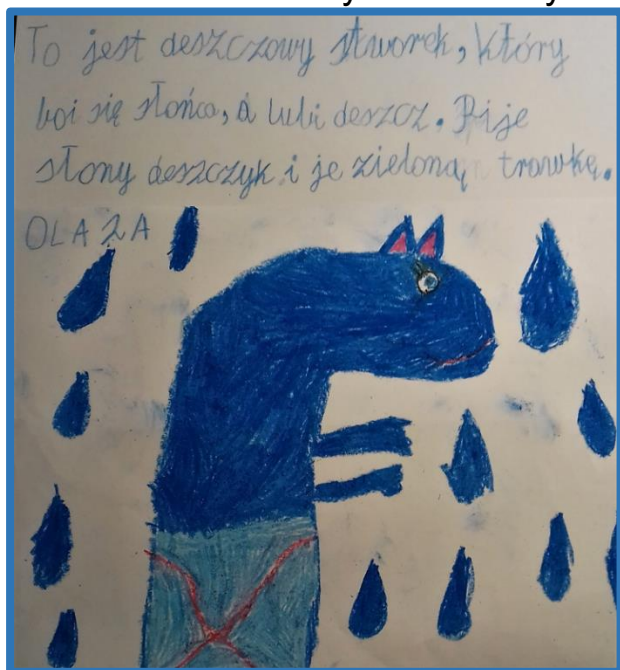 To jest deszczowy stworek, który
boi się słońca, a lubi deszcz. Pije
słony deszczyk i je zieloną trawkę.
OLA 2A